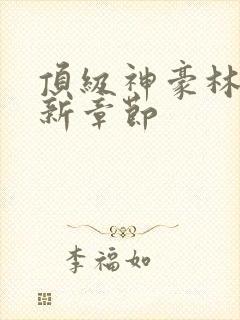 頂級神豪林
新章節
李福如